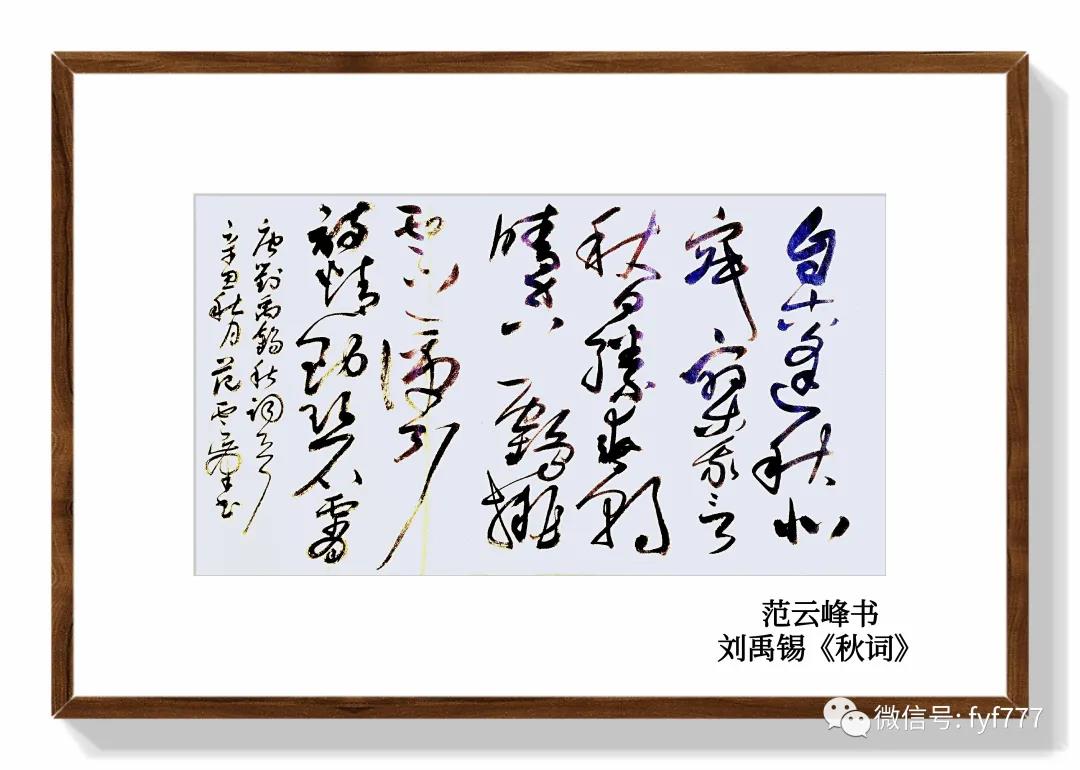 自古逢秋悲
寂寥我言
秋日勝春朝
晴空一鶴排
雲上便引
詩情到碧霄
唐劉禹錫秋詞
辛丑秋月范雲峰書
范云峰书
刘禹锡《秋词》
微信号: fyf777